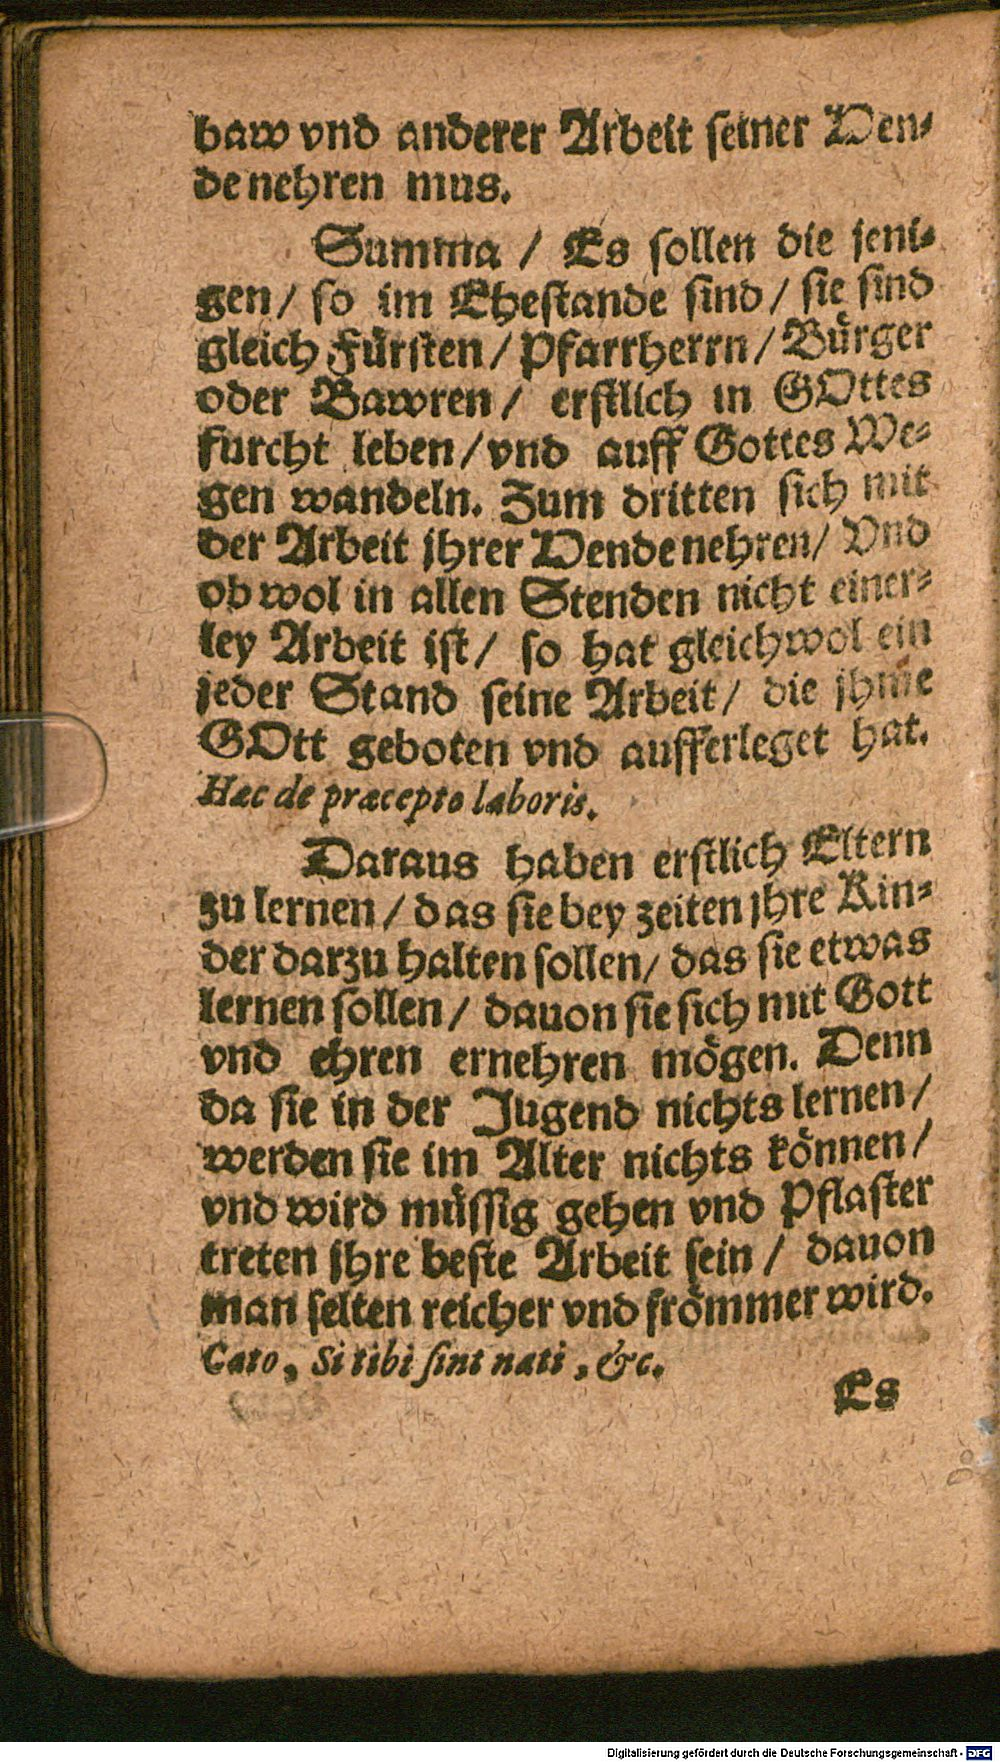 baw vnd anderer Arbeit seiner Hen-
de nehren mus.
Summa / Es sollen die jeni-
gen / so im Ehestande sind / sie sind
gleich Fürsten / Pfarrherrn / Bürger
oder Bawren / erstlich in GOttes
furcht leben / vnd auff Gottes We-
gen wandeln. Zum dritten sich mit
der Arbeit jhrer Hende nehren / Vnd
ob wol in allen Stenden nicht einer-
ley Arbeit ist / so hat gleichwol ein
jeder Stand seine Arbeit / die jhme
GOtt geboten vnd aufferleget hat.
Hæc de præcepto laboris.
Daraus haben erstlich Eltern
zu lernen / das sie bey zeiten jhre Kin-
der darzu halten sollen / das sie etwas
lernen sollen / dauon sie sich mit Gott
vnd ehren ernehren mögen. Denn
da sie in der Jugend nichts lernen /
werden sie im Alter nichts können /
vnd wird müssig gehen vnd Pflaster
treten jhre beste Arbeit sein / dauon
man selten reicher vnd frömmer wird.
Cato, Si tibi sint nati, &c.
Es
Digitalisierung gefördert durch die Deutsche Forschungsgemeinschaft - DFG